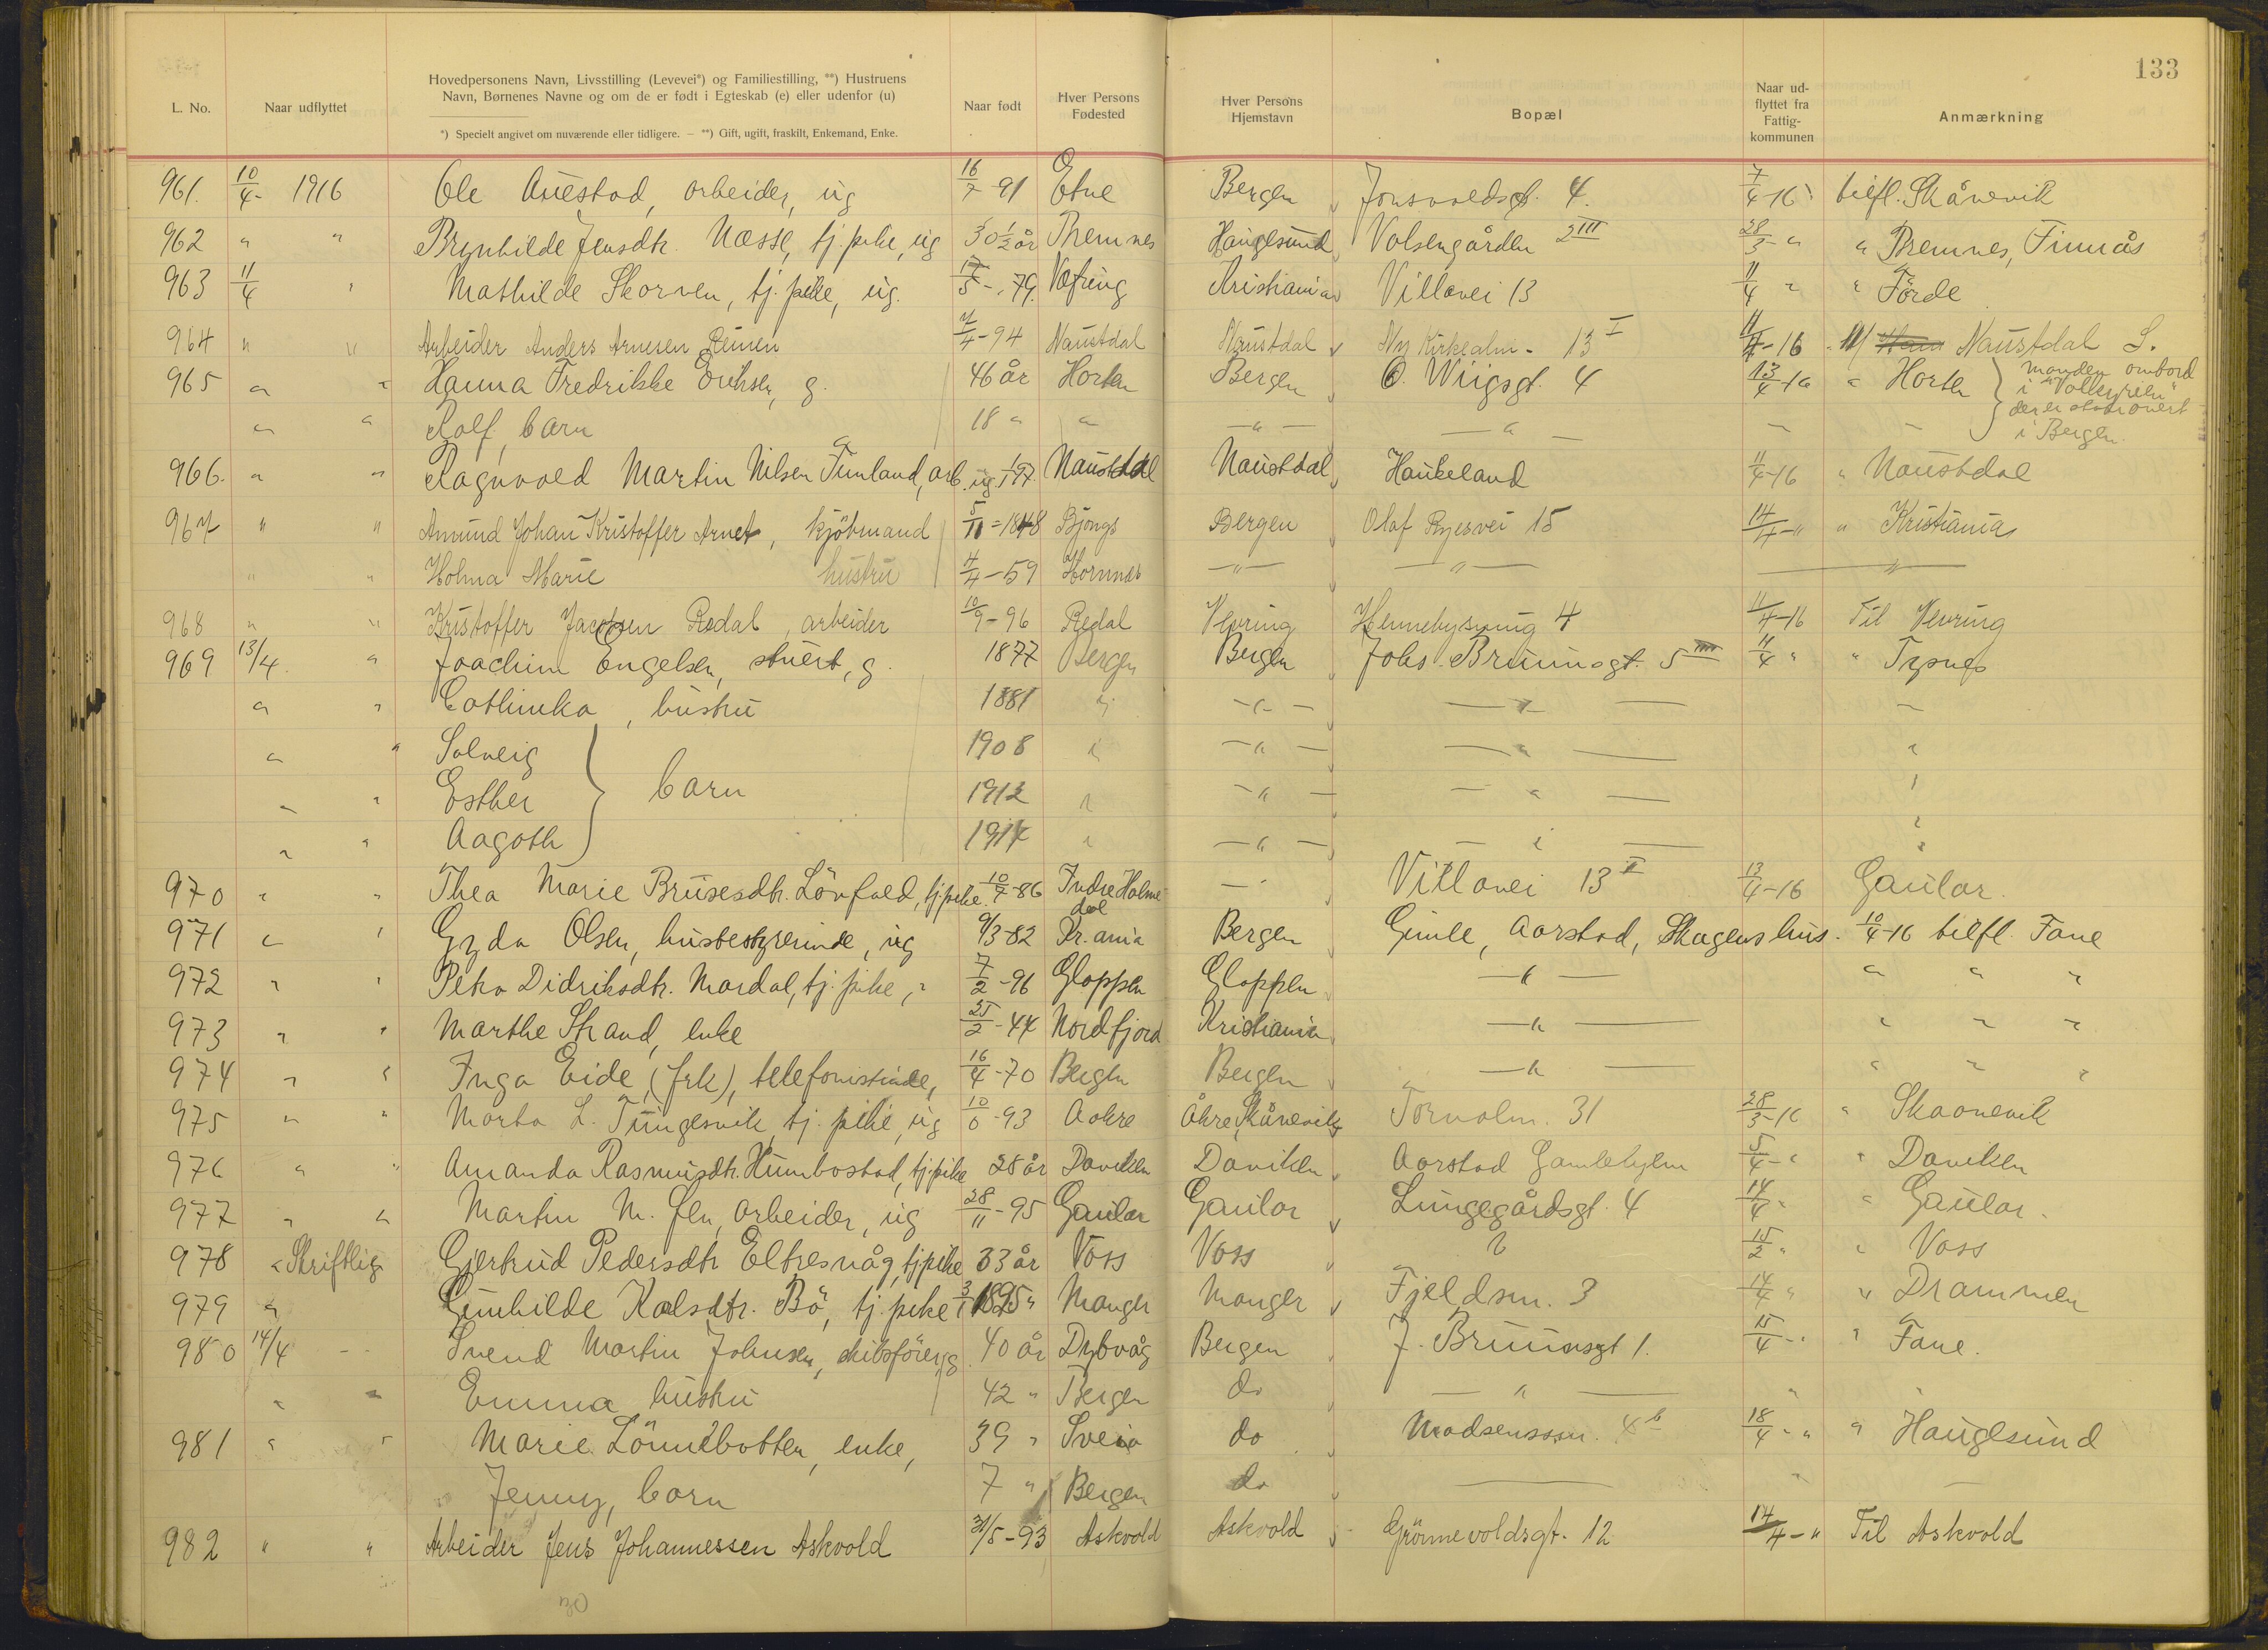 133
L. No.
Naar udflyttet
Hovedpersonens Navn, Livsstilling (Levevei*) og Familiestilling, **) Hustruens
Navn, Børnenes Navne og om de er født i Egteskab (e) eller udenfor (u)
*) Specielt angivet om nuværende eller tidligere. — **) Gift, ugift, fraskilt, Enkemand, Enke.
Naar født
Hver Persons
Fødested
Hver Persons
Hjemstavn
Bopæl
Naar ud-
flyttet fra
Fattig-
kommunen
Anmærkning
961. 10/4- 1916 Ole Auestad, arbeider, ug 16/7-91 Etne Bergen Jonsvoldsgt. 4. 7/4-16 tilfl. Skånevik
962 " " Brynhilde Jensdtr. Næsse, tj. pike, ug 30 1/2 år Bremnes Haugesund Volsengården 2 III 28/3-" " Bremnes, Finnås
963 11/4 " Mathilde Skorven, tj. pike, ug. 17/5-79. Vefring Kristiania Villavei 13 11/4 " " Förde
964 " " Arbeider Anders Arnesen Reinen 7/4-94 Naustdal Naustdal Ny Kirkealm- 13 I 11/4-16 Naustdal S.
965 " " Hanna Fredrikke Eriksen, g. 46 år Horten Bergen O. Wiigsgt. 4 13/4-16 " Horten } manden ombord
i "Valkyrien"
der er stationert
i Bergen.
" " Rolf, barn 18 " " -"- -"- - -
966. " " Ragnvald Martin Nilsen Funland, arb. ug. 1/1 97. Naustdal Naustdal Haukeland 11/4-16 " Naustdal
967 " " Amund Johan Kristoffer Arnet, kjöbmand 5/11-1848 Bergen Olaf Ryesvei 15 14/4-" " Kristiania
" " Holma Marie hustru 4/4-59 Hornnes -"- -"- -"-
968 " " Kristoffer Jacobsen Redal, arbeider 10/9-96 Redal Vevring Hennebysmug 4 11/4-16 Til Vevring
969 13/4. " Joachim Engelsen, stuert, g. 1877 Bergen Bergen Johs. Bruunsgt. 5 11/4 " " Tysnes
" " Cathinka, hustru 1881 " -"- -"- -
" " Solveig 1908 " -"- -"- "
" " Esther } barn 1912 " -"- -"- "
" " Aagoth 1914 " -"- -"- "
970 " " Thea Marie Brusesdtr. Lövfald, tj. pike. 10/7-86 Indre Holme-
dal -"- Villavei 13 II 13/4-16 Gaular.
971 " " Gyda Olsen, husbestyrerinde, ug 9/3-82 Kr.ania Bergen Gimle, Aarstad, Skagens hus. 10/4-16 tilfl. Fane
972 " " Petra Didriksdtr. Mardal, tj. pike, " 7/2-96 Gloppen Gloppen -"- " " "
973 " " Marthe Strand, enke 25/2-44 Nordfjord Kristiania -"- " " "
974 " " Inga Eide, (frk), telefonistinde, 16/4-70 Bergen Bergen -"- " " "
975 " " Marta L. Tungesvik, tj. pike, ug 10/6-93 Aakre Åkre, Skånevik Torvalm. 31 28/3-16 " Skaanevik
976 " " Amanda Rasmusdtr. Humborstad, tj. pike 28 år Daviken Daviken Aarstad Gamlehjem 5/4-" " Daviken
977 " " Martin M. Sen, arbeider, ug 28/11-95 Gaular Gaular Lungegårdsgt. 4 14/4 " " Gaular.
978 " Skriftlig Gjertrud Pedersdtr Eltresvåg, tj. pike 33 år Voss Voss ? 15/2 " " Voss
979 " Gunhilde Kalsdtr. Bö, tj. pike 3/1 1895 " Manger Manger Fjeldsm. 3 14/4 " " Drammen
980 14/4 - - Svend Martin Johnsen, skibsförer, g 40 år Dybvåg Bergen J. Bruunsgt 1. 15/4-" " Fane.
" " Emma hustru 42 " Bergen do -"- " "
981 " " Marie Lönnebotten, enke, 39 " Sveio do Madsenssm. 4 b 18/4-" " Haugesund
Jenny, barn 7 " Bergen do - " -
982 " " Arbeider Jens Johannessen Askvold 31/5-93 Askvold Askvold Grönnevoldsgt. 12 14/4-" Til Askvold
30